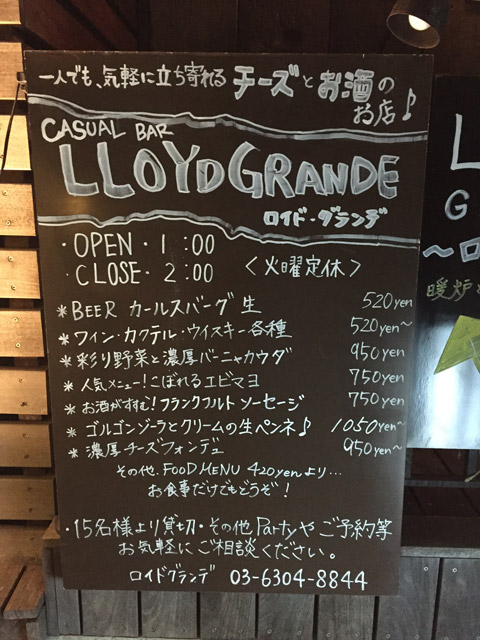 一人でも、気軽に立ち寄れる チーズとお酒の
お店♪
CASUAL BAR
LLOYD GRANDE
ロイド・グランデ
・OPEN・1 :00
・CLOSE・2:00 <火曜定休>
*BEER カールスバーグ 生 520yen
*ワイン・カクテル・ウイスキー各種 520yen~
*彩り野菜と濃厚バーニャカウダ 950yen
*人気メニュー!こぼれるエビマヨ 750yen
*お酒がすすむ!フランクフルト ソーセージ 750yen
*ゴルゴンゾーラとクリームの生ペンネ♪ 1050yen~
*濃厚チーズフォンデュ 950yen~
その他、FOOD MENU 420yenより...
お食事だけでもどうぞ!
・15名様より貸切・その他Partyや ご予約等
お気軽にご相談ください。
ロイドグランデ 03-6304-8844
L
G
~ロ
暖炉